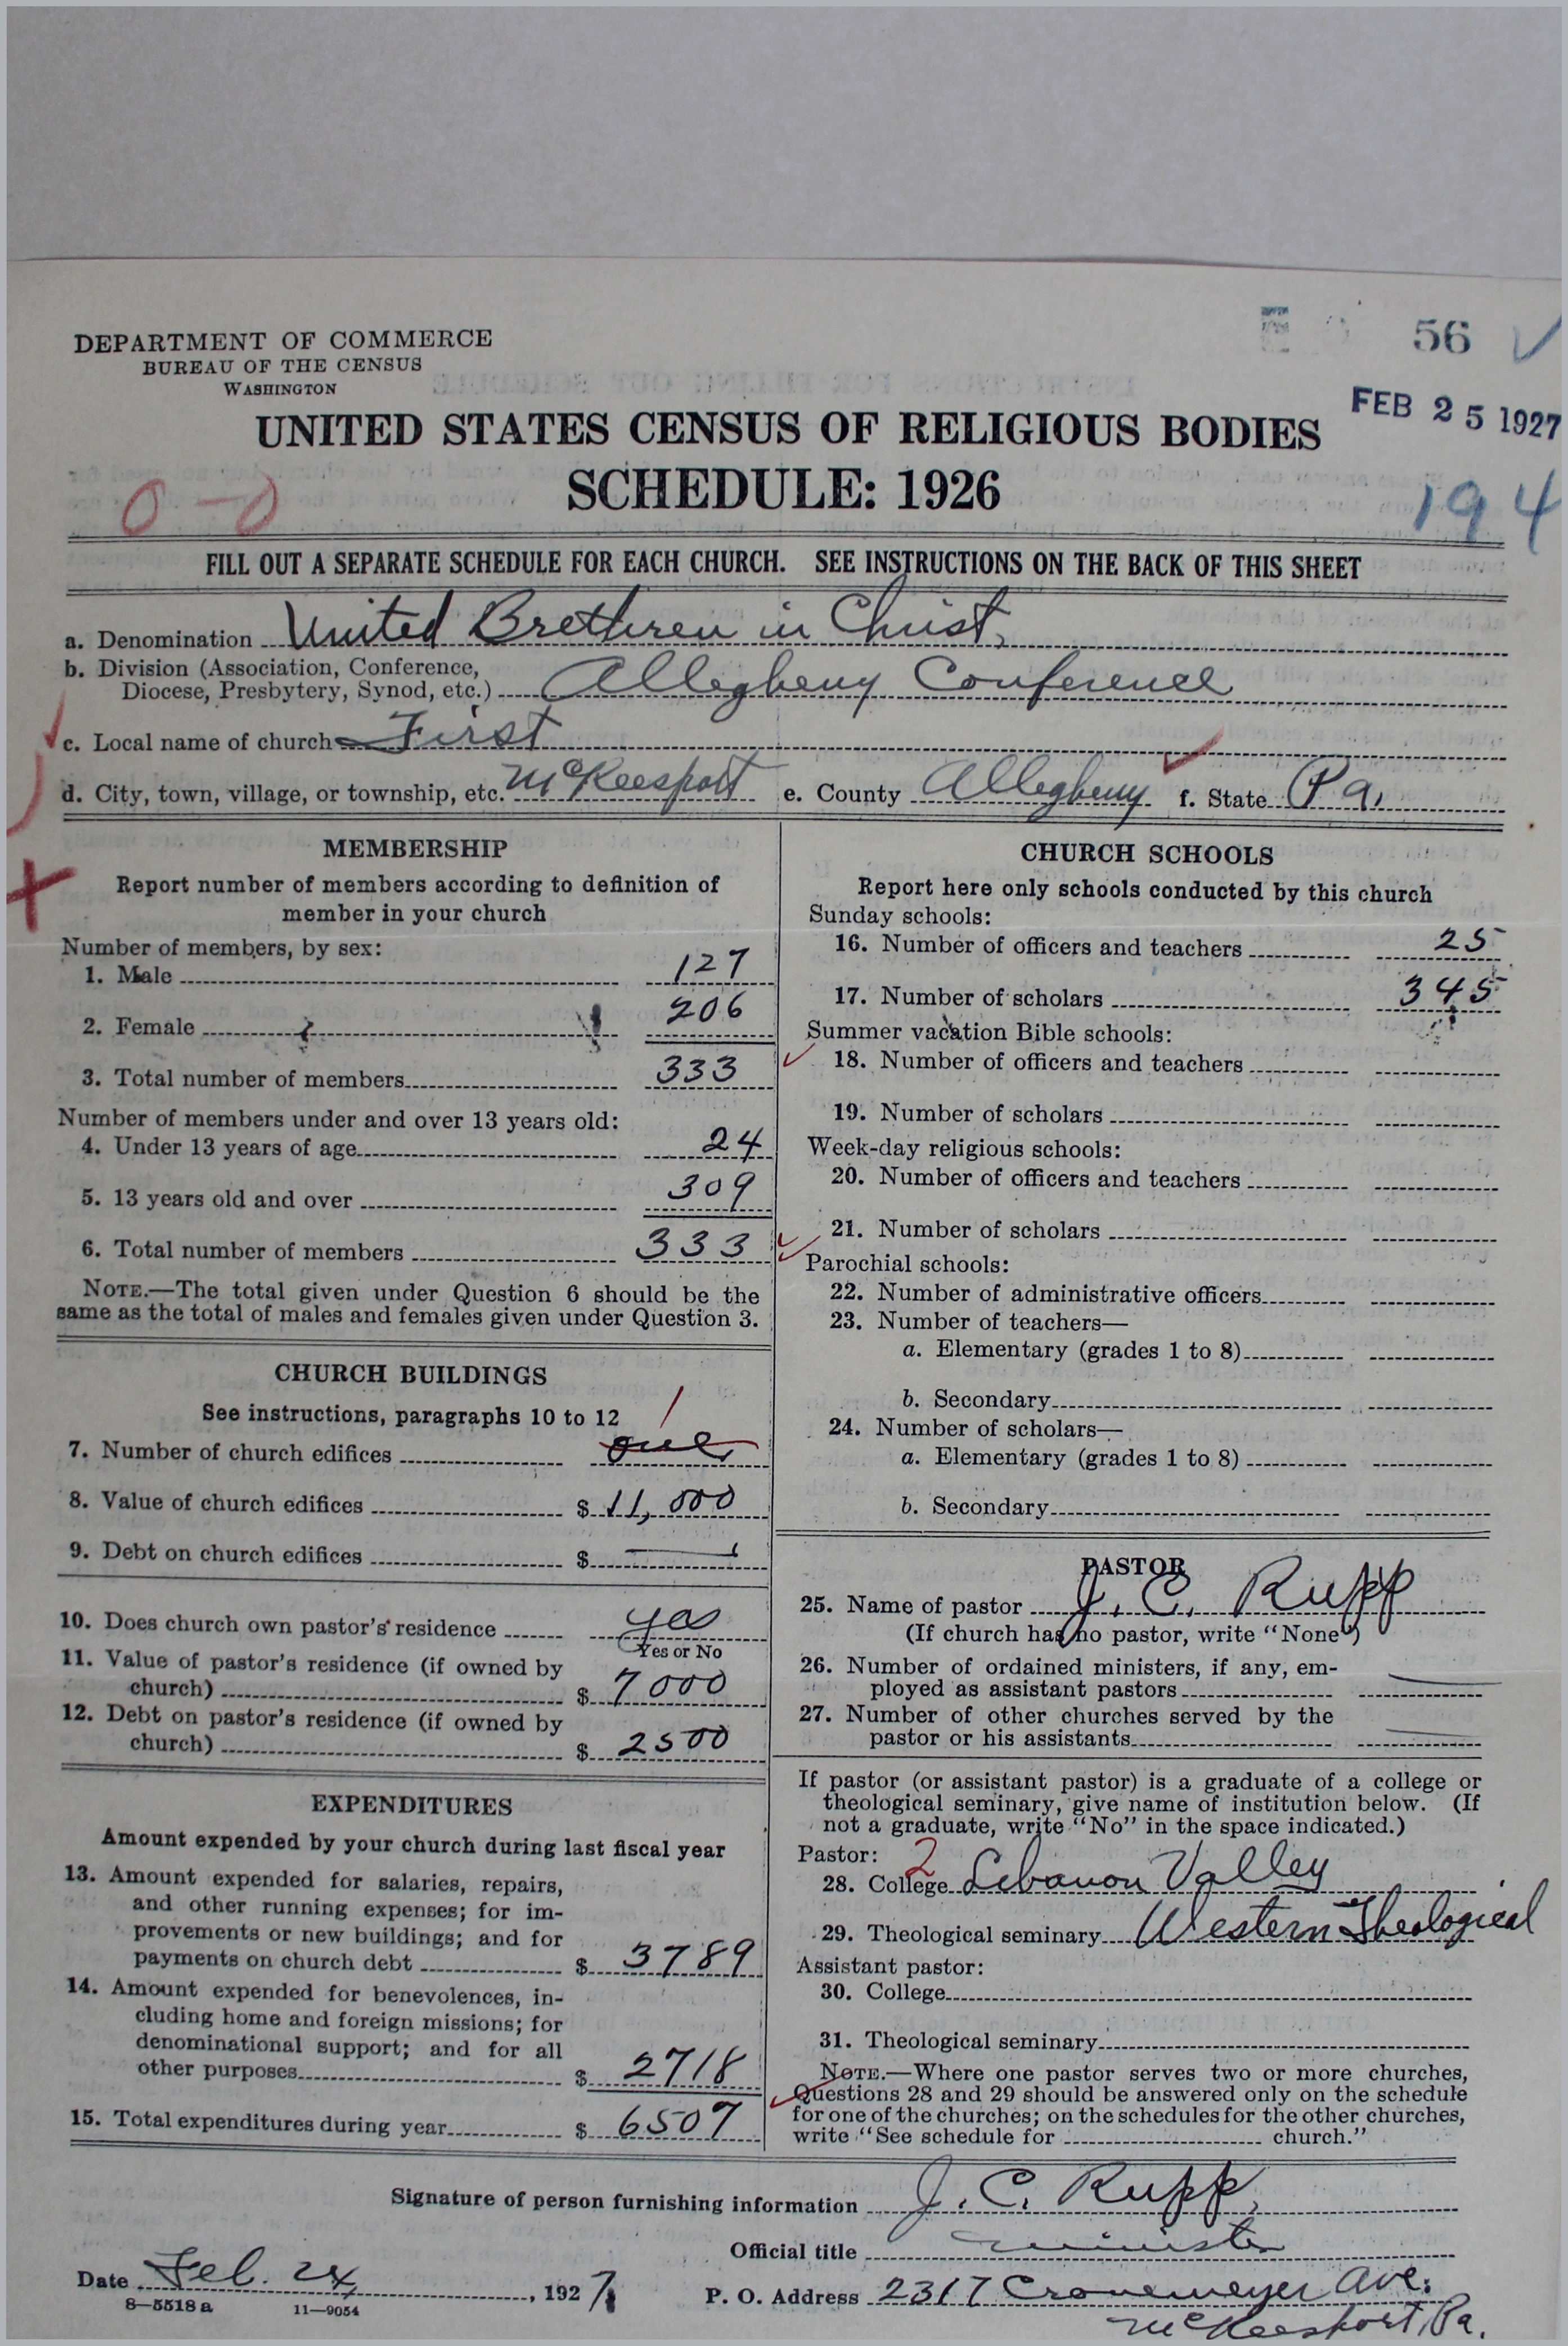 56
DEPARTMENT OF COMMERCE
BUREAU OF THE CENSUS
WASHINGTON
FEB 25 1927
UNITED STATES CENSUS OF RELIGIOUS BODIES
SCHEDULE: 1926
0-0
194
FILL OUT A SEPARATE SCHEDULE FOR EACH CHURCH. SEE INSTRUCTIONS ON THE BACK OF THIS SHEET
a. Denomination United Brethren in Christ,
b. Division (Association, Conference,
Diocese, Presbytery, Synod, etc.) Allegheny Conference
c. Local name of church First
d. City, town, village, or township, etc. McKeesport e. County Allegheny f. State Pa.
MEMBERSHIP
Report number of members according to definition of
member in your church
Number of members, by sex:
1. Male 127
2. Female 206
3. Total number of members 333
Number of members under and over 13 years old:
4. Under 13 years of age 24
5. 13 years old and over 309
6. Total number of members 333
NOTE.—The total given under Question 6 should be the
same as the total of males and females given under Question 3.
CHURCH BUILDINGS
See instructions, paragraphs 10 to 12
1
7. Number of church edifices one
8. Value of church edifices $ 11,000
9. Debt on church edifices $ —
10. Does church own pastor's residence yes
Yes or No
11. Value of pastor's residence (if owned by
church) $ 7000
12. Debt on pastor's residence (if owned by
church) $ 2500
EXPENDITURES
Amount expended by your church during last fiscal year
13. Amount expended for salaries, repairs,
and other running expenses; for im-
provements or new buildings; and for
payments on church debt $ 3789
14. Amount expended for benevolences, in-
cluding home and foreign missions; for
denominational support; and for all
other purposes $ 2718
15. Total expenditures during year $ 6507
CHURCH SCHOOLS
Report here only schools conducted by this church
Sunday schools:
16. Number of officers and teachers 25
17. Number of scholars 345
Summer vacation Bible schools:
18. Number of officers and teachers
19. Number of scholars
Week-day religious schools:
20. Number of officers and teachers
21. Number of scholars
Parochial schools:
22. Number of administrative officers
23. Number of teachers—
a. Elementary (grades 1 to 8)
b. Secondary
24. Number of scholars—
a. Elementary (grades 1 to 8)
b. Secondary
PASTOR
25. Name of pastor J. C. Rupp
(If church has no pastor, write "None")
26. Number of ordained ministers, if any, em-
ployed as assistant pastors —
27. Number of other churches served by the
pastor or his assistants —
If pastor (or assistant pastor) is a graduate of a college or
theological seminary, give name of institution below. (If
not a graduate, write "No" in the space indicated.)
Pastor: 2
28. College Lebanon Valley
29. Theological seminary Western Theological
Assistant pastor:
30. College
31. Theological seminary
NOTE.—Where one pastor serves two or more churches,
Questions 28 and 29 should be answered only on the schedule
for one of the churches; on the schedules for the other churches,
write "See schedule for church."
Signature of person furnishing information J. C. Rupp,
Official title minister
Date Feb. 24, 1927
P. O. Address 2317 Cronemeyer Ave.
McKeesport, Pa.
8—5518 a 11—9054